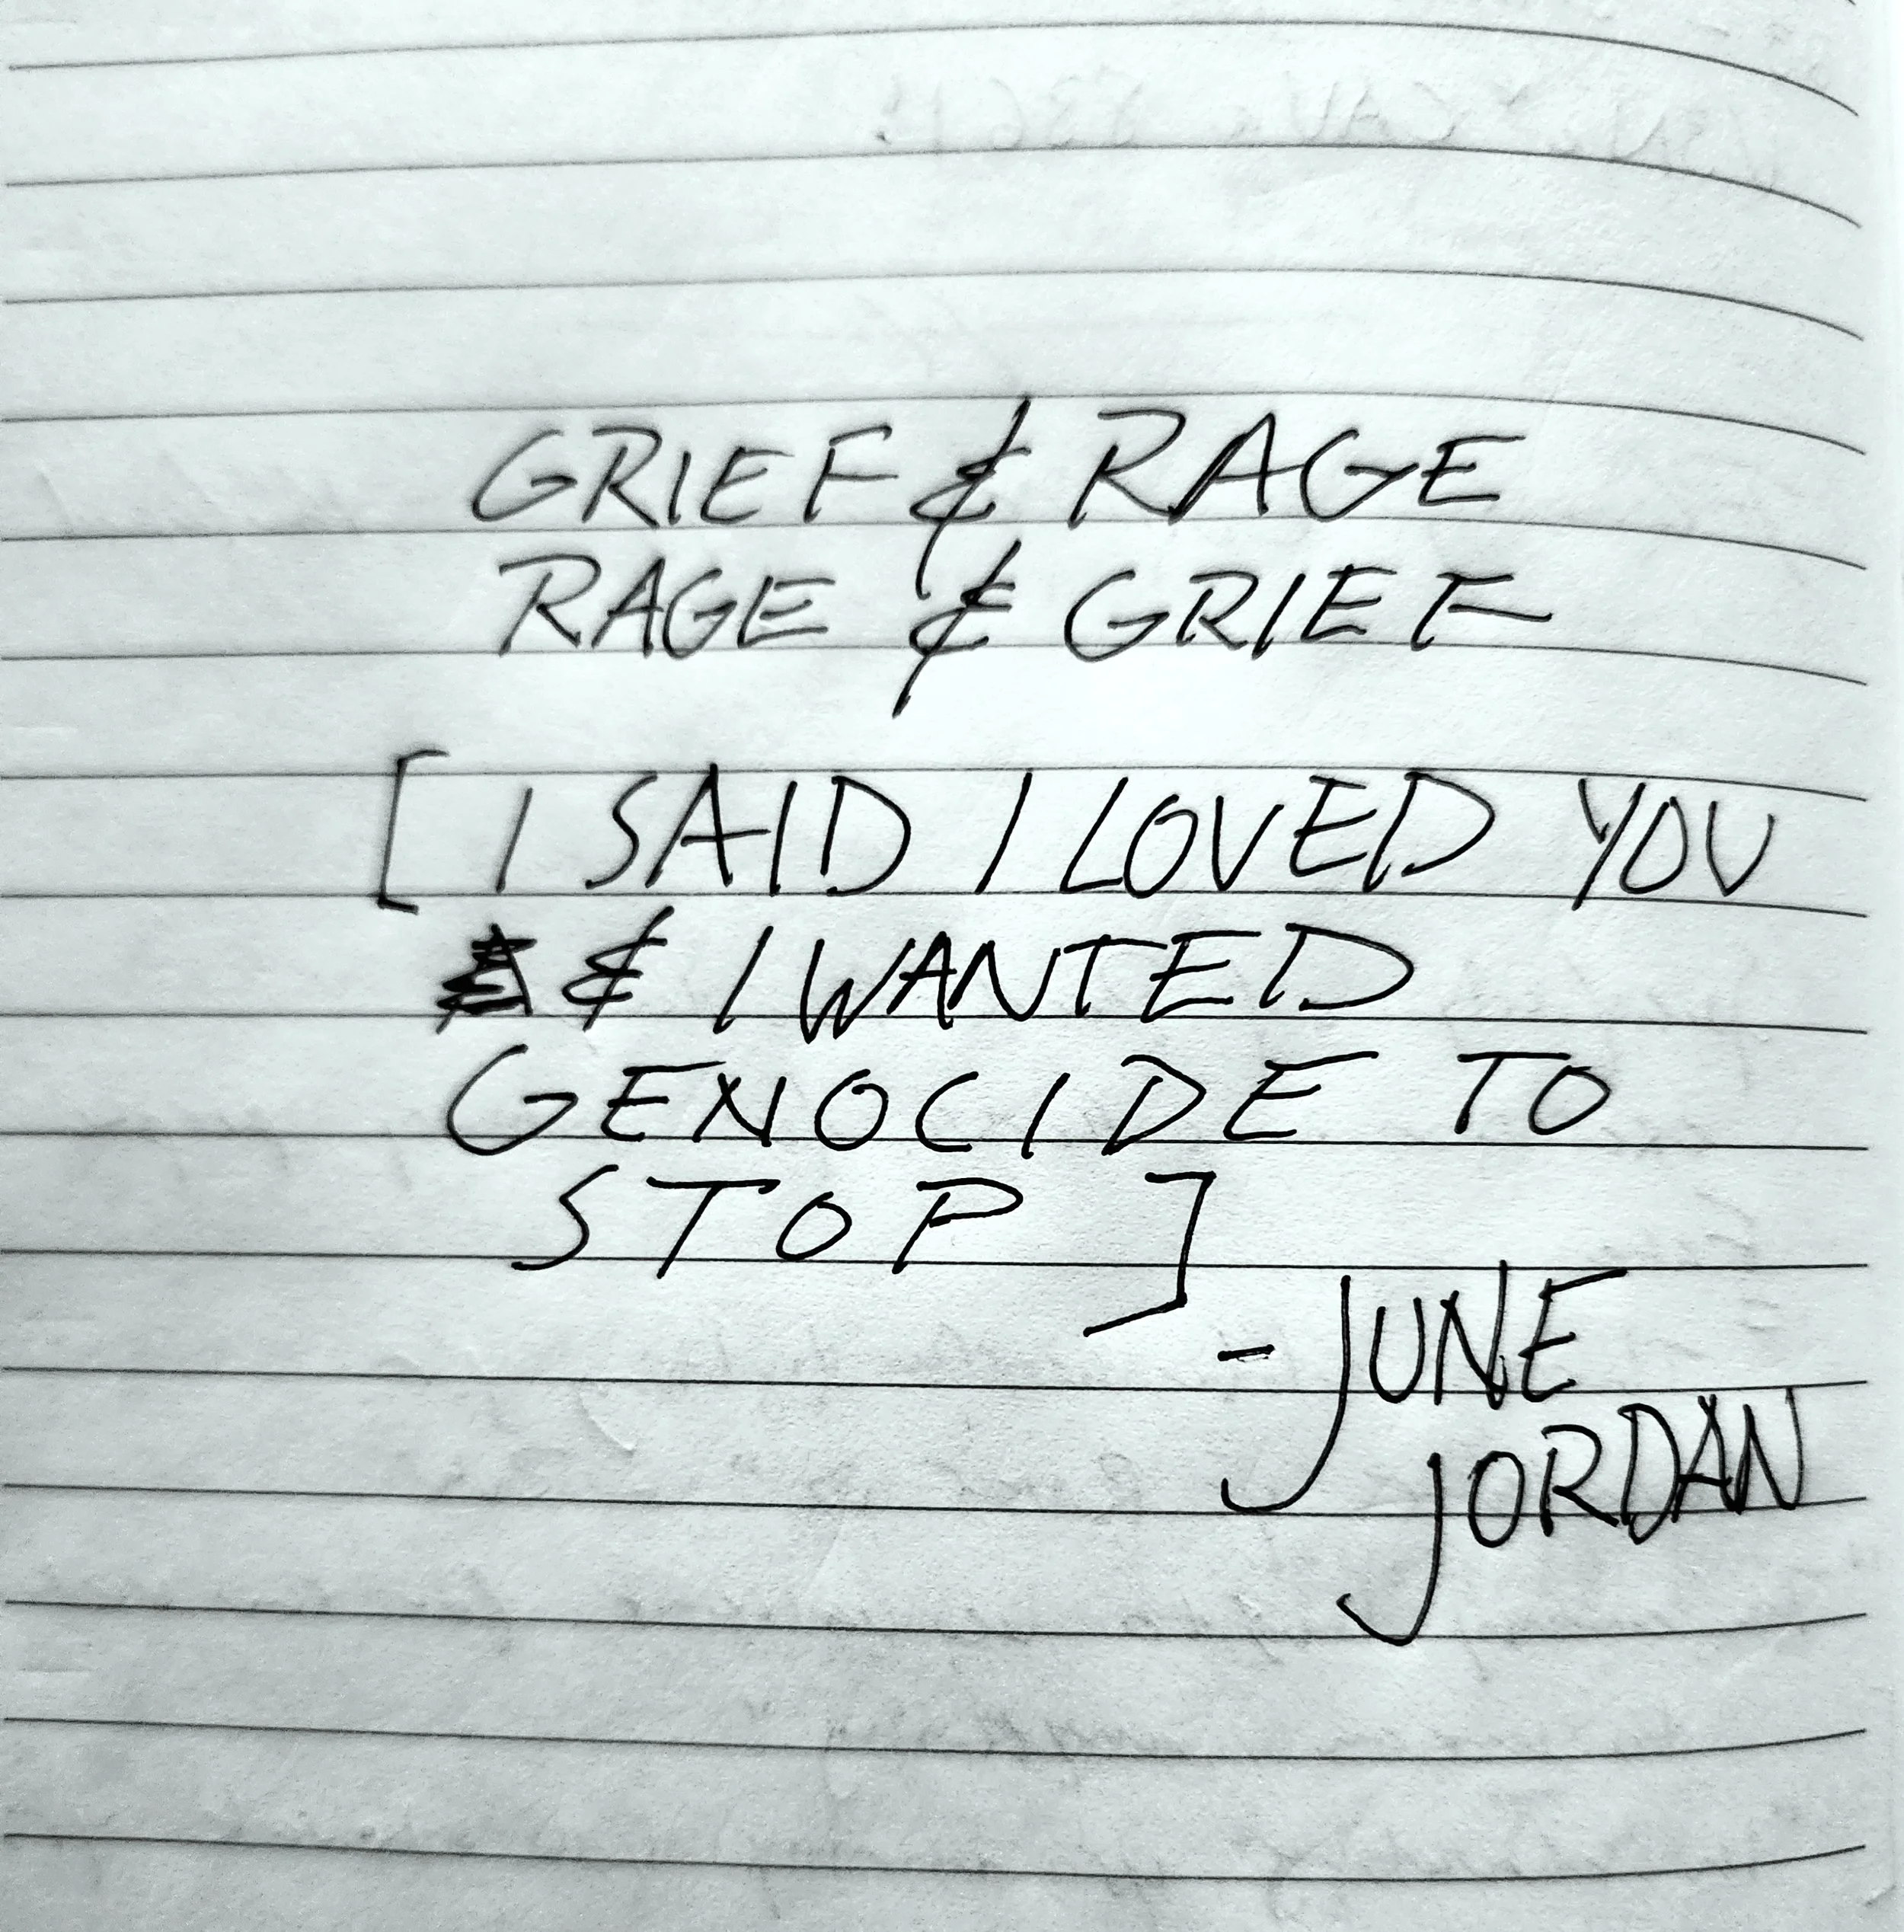 GRIEF & RAGE
RAGE & GRIEF
[I SAID I LOVED YOU
& I WANTED
GENOCIDE TO
STOP]
- JUNE
JORDAN